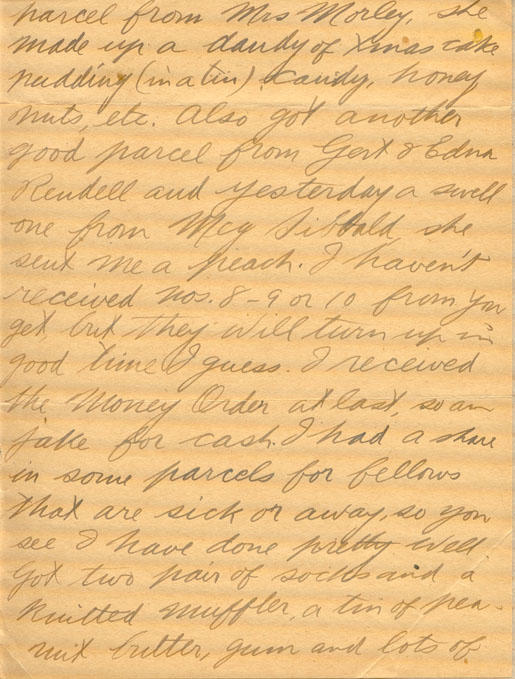 parcel from Mrs Morley, she
made up a dandy of Xmas cake
pudding (in a tin) candy, honey
nuts, etc. Also got another
good parcel from Gert & Edna
Rendell and yesterday a swell
one from Meg Sibbald, she
sent me a peach. I haven't
received nos. 8-9 or 10 from you
yet but they will turn up in
good time I guess. I received
the Money Order at last, so am
jake for cash. I had a share
in some parcels for fellows
that are sick or away, so you
see I have done pretty well.
Got two pair of socks and a
knitted muffler, a tin of pea-
nut butter, gum and lots of